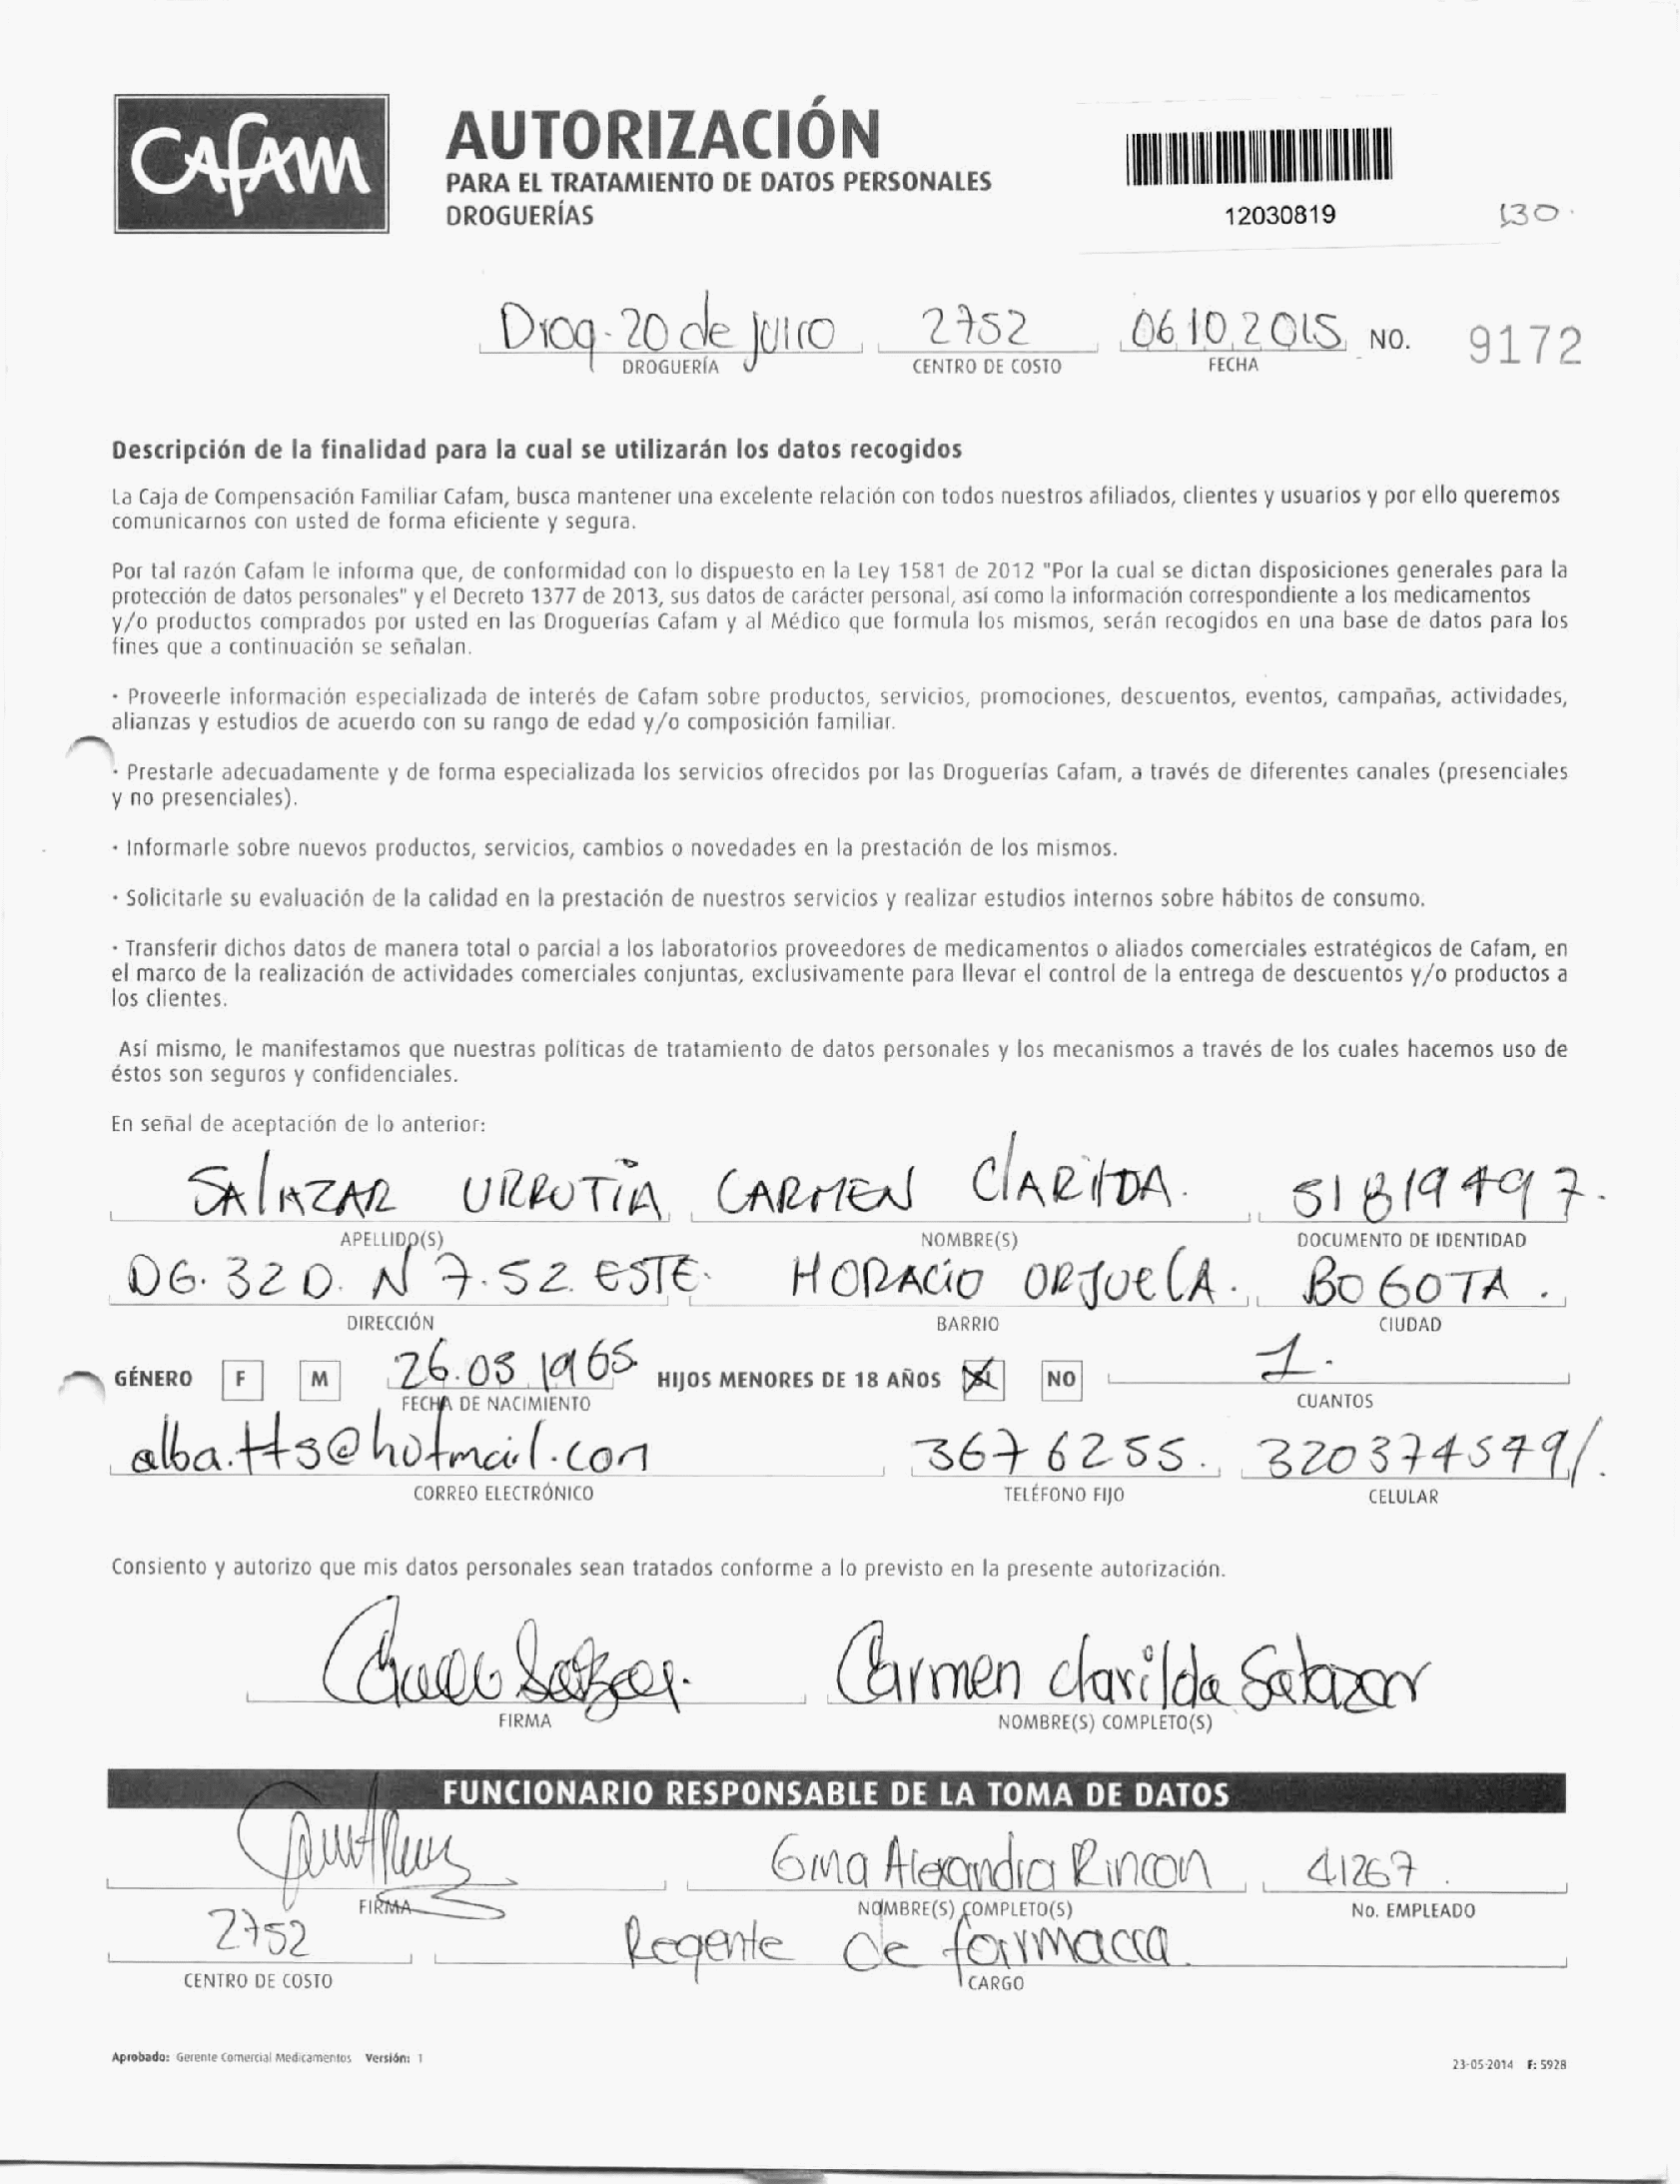 CAFAM
AUTORIZACIÓN
PARA EL TRATAMIENTO DE DATOS PERSONALES
DROGUERÍAS
12030819
130.
Drog. 20 de julio 2752 06 10 2015 NO. 9172
DROGUERÍA CENTRO DE COSTO FECHA
Descripción de la finalidad para la cual se utilizarán los datos recogidos
La Caja de Compensación Familiar Cafam, busca mantener una excelente relación con todos nuestros afiliados, clientes y usuarios y por ello queremos
comunicarnos con usted de forma eficiente y segura.
Por tal razón Cafam le informa que, de conformidad con lo dispuesto en la Ley 1581 de 2012 "Por la cual se dictan disposiciones generales para la
protección de datos personales" y el Decreto 1377 de 2013, sus datos de carácter personal, así como la información correspondiente a los medicamentos
y/o productos comprados por usted en las Droguerías Cafam y al Médico que formula los mismos, serán recogidos en una base de datos para los
fines que a continuación se señalan.
· Proveerle información especializada de interés de Cafam sobre productos, servicios, promociones, descuentos, eventos, campañas, actividades,
alianzas y estudios de acuerdo con su rango de edad y/o composición familiar.
· Prestarle adecuadamente y de forma especializada los servicios ofrecidos por las Droguerías Cafam, a través de diferentes canales (presenciales
y no presenciales).
· Informarle sobre nuevos productos, servicios, cambios o novedades en la prestación de los mismos.
· Solicitarle su evaluación de la calidad en la prestación de nuestros servicios y realizar estudios internos sobre hábitos de consumo.
· Transferir dichos datos de manera total o parcial a los laboratorios proveedores de medicamentos o aliados comerciales estratégicos de Cafam, en
el marco de la realización de actividades comerciales conjuntas, exclusivamente para llevar el control de la entrega de descuentos y/o productos a
los clientes.
Así mismo, le manifestamos que nuestras políticas de tratamiento de datos personales y los mecanismos a través de los cuales hacemos uso de
éstos son seguros y confidenciales.
En señal de aceptación de lo anterior:
SALAZAR URRUTIA CARMEN CLARILDA. 51819497.
APELLIDO(S) NOMBRE(S) DOCUMENTO DE IDENTIDAD
DG. 32 D. N 7.52 ESTE. HORACIO ORJUELA. BOGOTA.
DIRECCIÓN BARRIO CIUDAD
GÉNERO F M 26.03 1965 HIJOS MENORES DE 18 AÑOS SI NO 1.
FECHA DE NACIMIENTO CUANTOS
alba.tts@hotmail.com 3676255. 320374579/.
CORREO ELECTRÓNICO TELÉFONO FIJO CELULAR
Consiento y autorizo que mis datos personales sean tratados conforme a lo previsto en la presente autorización.
Carmen clarilda Salazar
FIRMA NOMBRE(S) COMPLETO(S)
FUNCIONARIO RESPONSABLE DE LA TOMA DE DATOS
Gina Alexandra Rincon 41267
FIRMA NOMBRE(S) COMPLETO(S) No. EMPLEADO
2752 Regente de farmacia
CENTRO DE COSTO CARGO
Aprobado: Gerente Comercial Medicamentos Versión: 1 23-05-2014 F: 5928